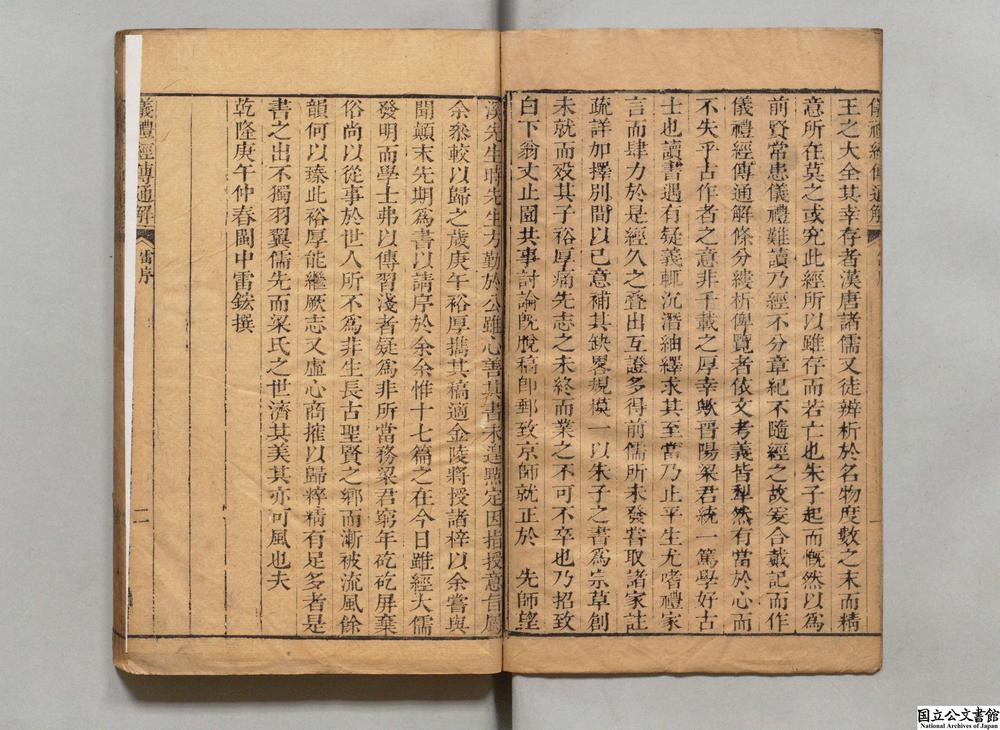 儀禮經傳通解
王之大全其幸存者漢唐諸儒又徒辨析於名物度數之末而精
意所在莫之或究此經所以雖存而若亡也朱子起而慨然以為
前賢常患儀禮難讀乃經不分章紀不隨經之故爰合戴記而作
儀禮經傳通解條分縷析俾覽者依文考義皆犁然有當於心而
不失乎古作者之意非千載之厚幸歟晋陽梁君統一篤學好古
士也讀書遇有疑義輒沉潛紬繹求其至當乃止平生尤嗜禮家
言而肆力於是經久之叠出互證多得前儒所未發嘗取諸家註
疏詳加擇別間以己意補其缺畧規摸一以朱子之書為宗草創
未就而歿其子裕厚痛先志之未終而業之不可不卒也乃招致
白下翁丈止園共事討論旣脫稿卽郵致京師就正於 先師望
溪先生時先生方勤於公雖心善其書未遑㸃定因指授意旨屬
余叅較以歸之歲庚午裕厚攜其稿適金陵將授諸梓以余嘗與
聞顛末先期為書以請序於余余惟十七篇之在今日雖經大儒
發明而學士弗以傳習淺者疑為非所當務梁君窮年矻矻屏棄
俗尚以從事於世人所不為非生長古聖賢之鄉而漸被流風餘
韻何以臻此裕厚能繼厥志又虛心商搉以歸粹精有足多者是
書之出不獨羽翼儒先而梁氏之世濟其美其亦可風也夫
乾隆庚午仲春閩中雷鋐撰
儀禮經傳通解
雷序
二
国立公文書館
National Archives of Japan